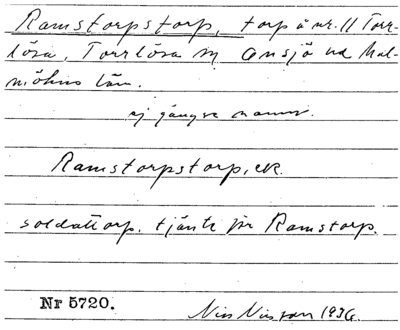 Ramstorpstorp, torp å nr. 11 Torr-
lösa, Torrlösa sn Onsjö hd Mal-
möhus län.
ej gängse namn.
Ramstorpstorp, ek.
soldattorp. tjänte för Ramstorp.
Nr 5720.
Nils Nilsson 1936.